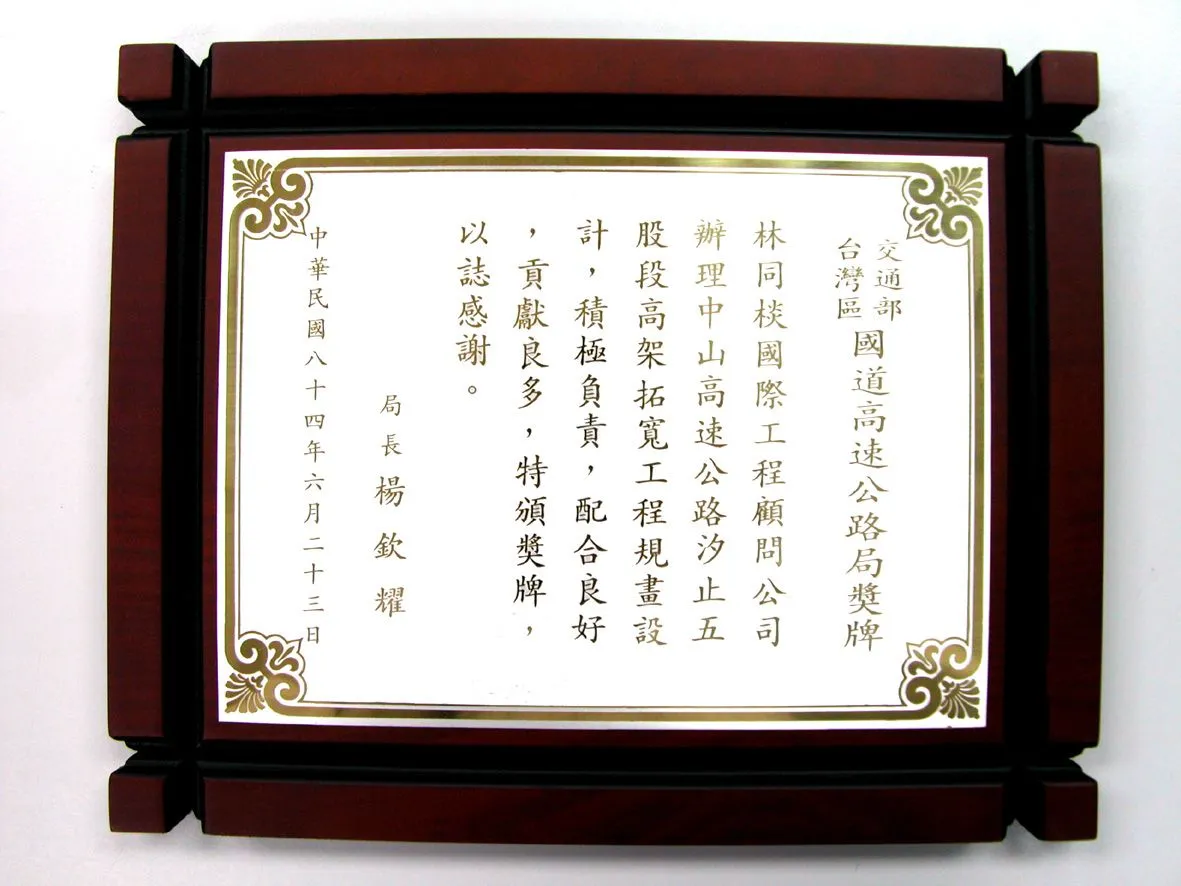 交通部
台灣區
國道高速公路局獎牌
林同棪國際工程顧問公司
辦理中山高速公路汐止五
股段高架拓寬工程規畫設
計，積極負責，配合良好
，貢獻良多，特頒獎牌，
以誌感謝。
局長楊欽耀
中華民國八十四年六月二十三日